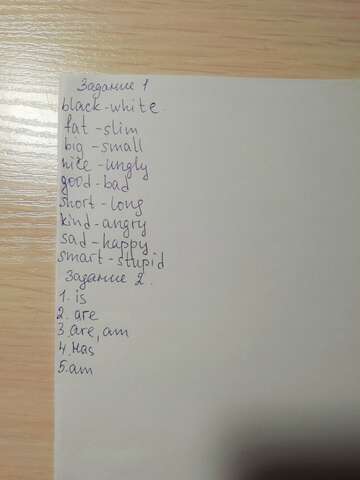 Задание 1
black-white.
fat-slim
big-small
nice-ungly
good-bad
short-long
kind-angry
sad-happy
smart-stupid
Задание 2.
1. is
2. are
3. are, am
4. Has
5. am